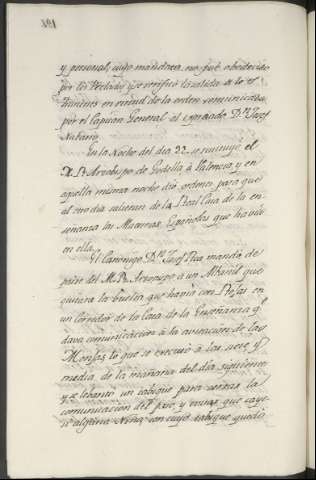 y general, cuyo mandato no fué obedecido
por los Prelados y se verificó la salida de los
en virtud de la orden comunicada
por el Capitan General al expresado Dn. Josef
Nabarro.
En la Noche del dia 22 se restituyó el
M. R. Arzobispo de Godella á Valencia, y en
aquella misma noche dió orden para que
al otro dia saliesen de la Real Casa de la en-
señanza las Maestras Españolas que havia
en ella.
El Canonigo Dn. Josef Roa mandó de
parte del M. R. Arzobispo á un Albañil que
quitara la buelta que havia con Rejas en
un corredor de la Casa de la Enseñanza q.e
dava comunicacion á la avitacion de las
Monjas, lo que se executó á las seis y
media de la mañana del dia siguiente
y se lebantó un tabique para cerrar la
comunicacion del paso, y evitar que caye-
se alguna Niña con cuyo tabique quedó